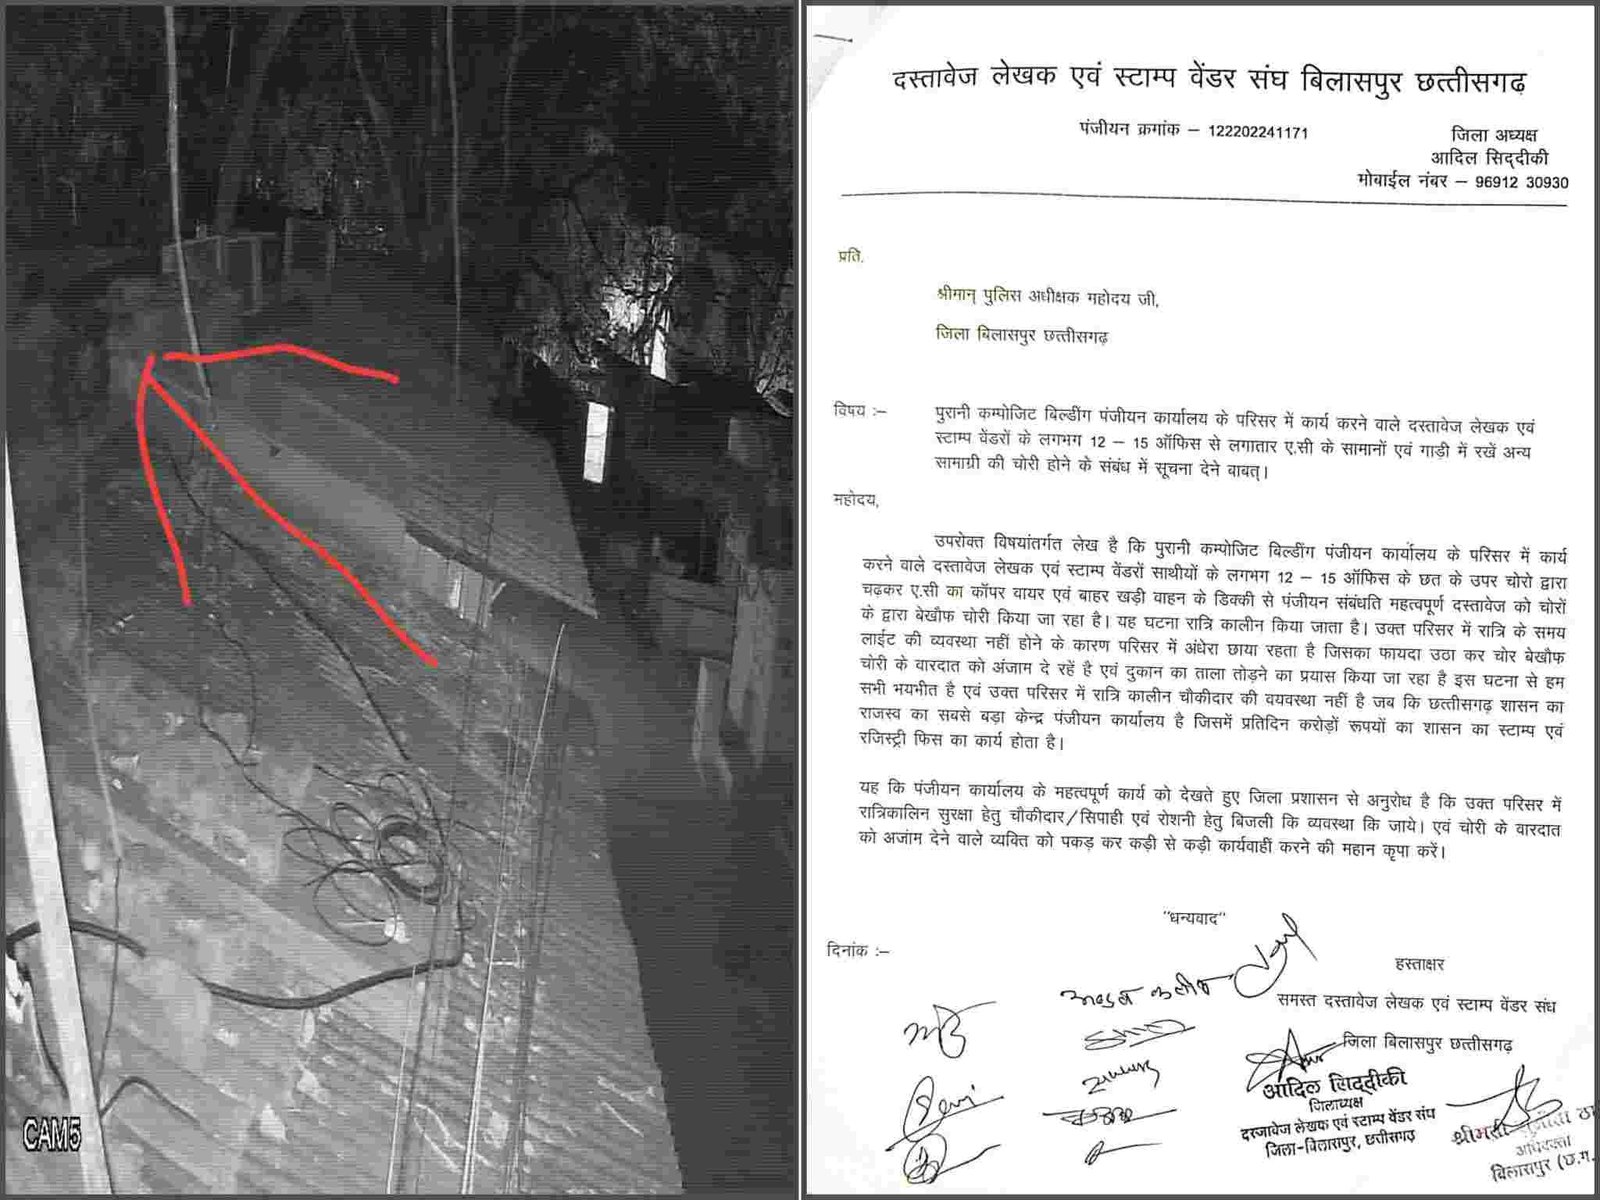 CAM5
दस्तावेज लेखक एवं स्टाम्प वेंडर संघ बिलासपुर छत्तीसगढ़
पंजीयन क्रगांक – 122202241171
जिला अध्यक्ष
आदिल सिद्दीकी
मोबाईल नंबर – 96912 30930
प्रति,
श्रीमान् पुलिस अधीक्षक महोदय जी,
जिला बिलासपुर छत्तीसगढ़
विषय :– पुरानी कम्पोजिट बिल्डींग पंजीयन कार्यालय के परिसर में कार्य करने वाले दस्तावेज लेखक एवं
स्टाम्प वेंडरों के लगभग 12 – 15 ऑफिस से लगातार ए.सी के सामानों एवं गाड़ी में रखें अन्य
सामाग्री की चोरी होने के संबंध में सूचना देने बाबत्।
महोदय,
उपरोक्त विषयांतर्गत लेख है कि पुरानी कम्पोजिट बिल्डींग पंजीयन कार्यालय के परिसर में कार्य
करने वाले दस्तावेज लेखक एवं स्टाम्प वेंडरों साथीयों के लगभग 12 – 15 ऑफिस के छत के उपर चोरो द्वारा
चढ़कर ए.सी का कॉपर वायर एवं बाहर खड़ी वाहन के डिक्की से पंजीयन संबंधति महत्वपूर्ण दस्तावेज को चोरों
के द्वारा बेखौफ चोरी किया जा रहा है। यह घटना रात्रि कालीन किया जाता है। उक्त परिसर में रात्रि के समय
लाईट की व्यवस्था नहीं होने के कारण परिसर में अंधेरा छाया रहता है जिसका फायदा उठा कर चोर बेखौफ
चोरी के वारदात को अंजाम दे रहें है एवं दुकान का ताला तोड़ने का प्रयास किया जा रहा है इस घटना से हम
सभी भयभीत है एवं उक्त परिसर में रात्रि कालीन चौकीदार की वयवस्था नहीं है जब कि छत्तीसगढ़ शासन का
राजस्व का सबसे बड़ा केन्द्र पंजीयन कार्यालय है जिसमें प्रतिदिन करोड़ों रूपयों का शासन का स्टाम्प एवं
रजिस्ट्री फिस का कार्य होता है।
यह कि पंजीयन कार्यालय के महत्वपूर्ण कार्य को देखते हुए जिला प्रशासन से अनुरोध है कि उक्त परिसर में
रात्रिकालिन सुरक्षा हेतु चौकीदार/सिपाही एवं रोशनी हेतु बिजली कि व्यवस्था कि जाये। एवं चोरी के वारदात
को अजांम देने वाले व्यक्ति को पकड़ कर कड़ी से कड़ी कार्यवाहीं करने की महान कृपा करें।
"धन्यवाद"
दिनांक :–
हस्ताक्षर
समस्त दस्तावेज लेखक एवं स्टाम्प वेंडर संघ
जिला बिलासपुर छत्तीसगढ़
आदिल सिद्दीकी
जिलाध्यक्ष
दस्तावेज लेखक एवं स्टाम्प वेंडर संघ
जिला-बिलासपुर, छत्तीसगढ़
श्रीमती
अधिवक्ता
बिलासपुर (छ.ग.